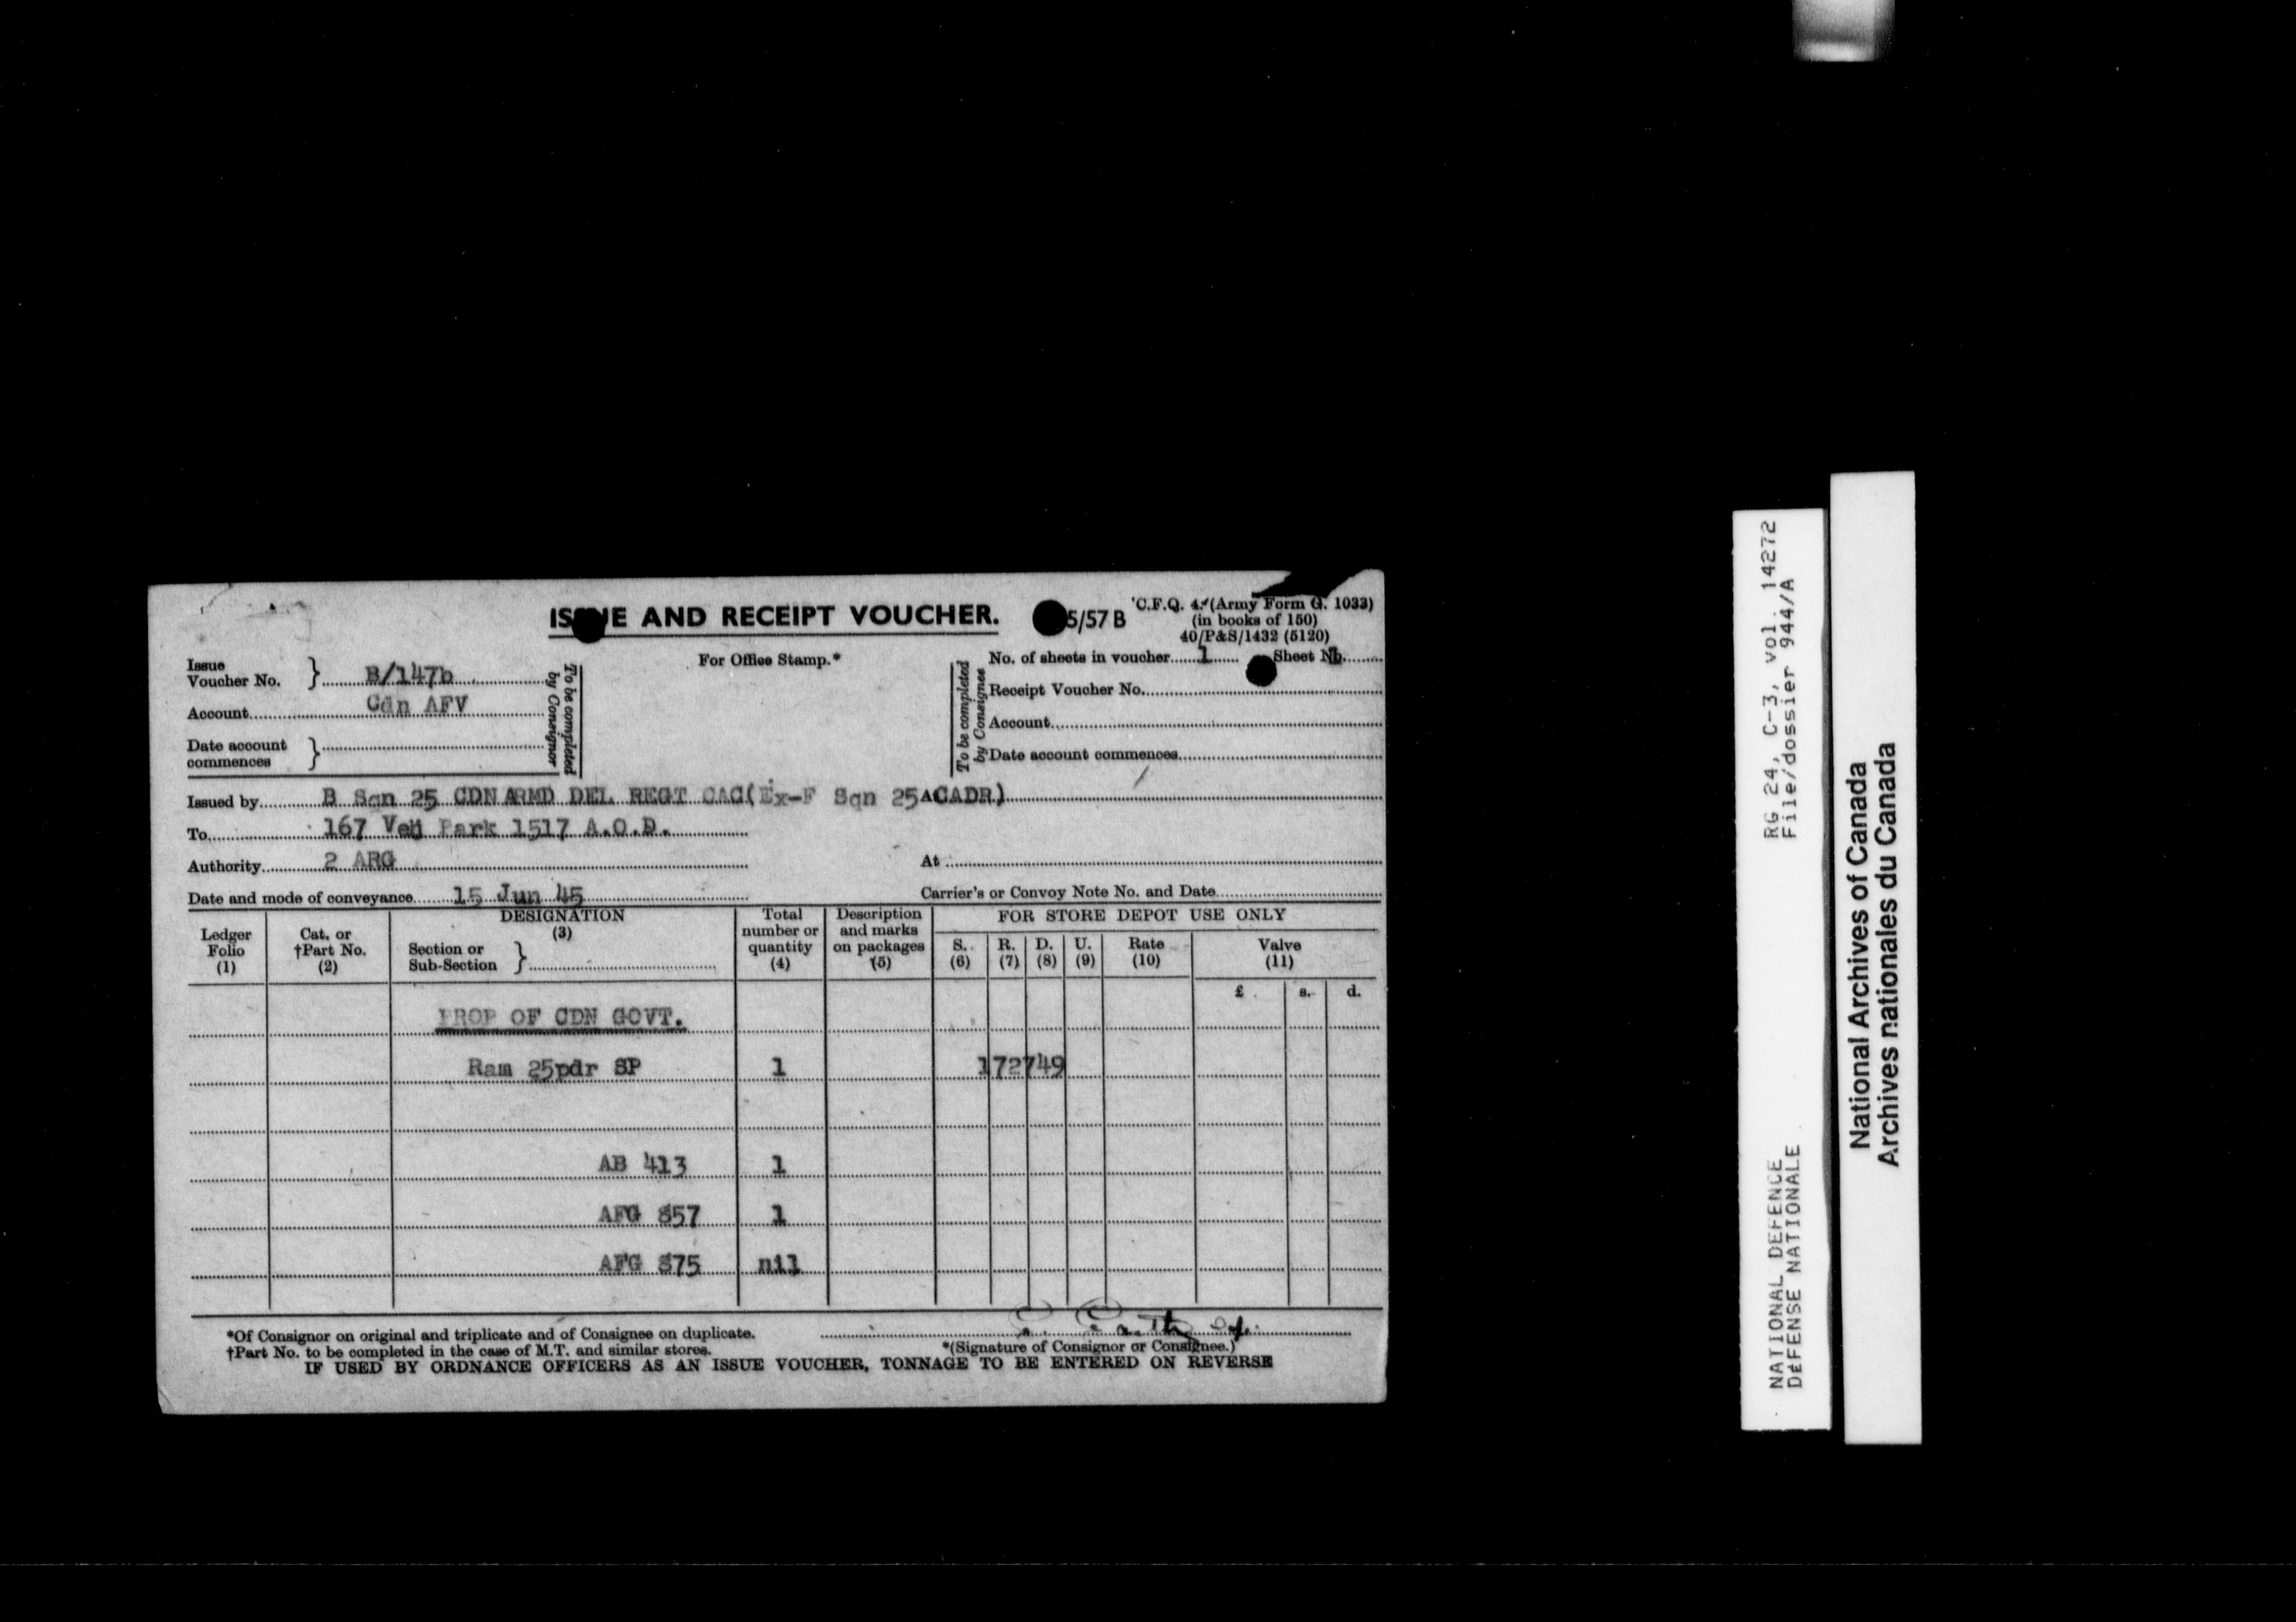 ISSUE AND RECEIPT VOUCHER.
5/57 B
C.F.Q. 4. (Army Form G. 1033)
(in books of 150)
40/P&S/1432 (5120)
Issue Voucher No. } B/147b
Account Cdn AFV
Date account commences }
To be completed by Consignor
For Office Stamp.*
To be completed by Consignee
No. of sheets in voucher 1 Sheet No. 1
Receipt Voucher No.
Account
Date account commences
Issued by B Sqn 25 CDN ARMD DEL REGT CAC(Ex-F Sqn 25 ACADR)
To 167 Veh Park 1517 A.O.D.
Authority 2 ARG
At
Date and mode of conveyance 15 Jun 45
Carrier's or Convoy Note No. and Date
Ledger Folio (1)
Cat. or †Part No. (2)
DESIGNATION (3)
Section or Sub-Section }
Total number or quantity (4)
Description and marks on packages (5)
FOR STORE DEPOT USE ONLY
S. (6) R. (7) D. (8) U. (9) Rate (10) Valve (11)
£ s. d.
PROP OF CDN GOVT.
Ram 25pdr SP 1 172749
AB 413 1
AFG 857 1
AFG 875 nil
*Of Consignor on original and triplicate and of Consignee on duplicate.
†Part No. to be completed in the case of M.T. and similar stores.
*(Signature of Consignor or Consignee.)
IF USED BY ORDNANCE OFFICERS AS AN ISSUE VOUCHER, TONNAGE TO BE ENTERED ON REVERSE
RG 24, C-3, vol. 14272
File/dossier 944/A
NATIONAL DEFENCE
DÉFENSE NATIONALE
National Archives of Canada
Archives nationales du Canada